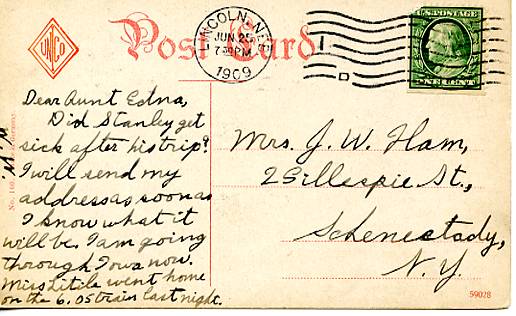 UNCo
Post Card
LINCOLN, NEB.
JUN 25
7-PM
1909
U.S. POSTAGE
Dear Aunt Edna,
Did Stanley get
sick after his trip?
I will send my
address as soon as
I know what it
will be. I am going
through Iowa now.
Miss Litile went home
on the 6.05 train last night.
Mrs. J. W. Ham,
2 Gillespie St.,
Schenectady,
N.Y.
59028